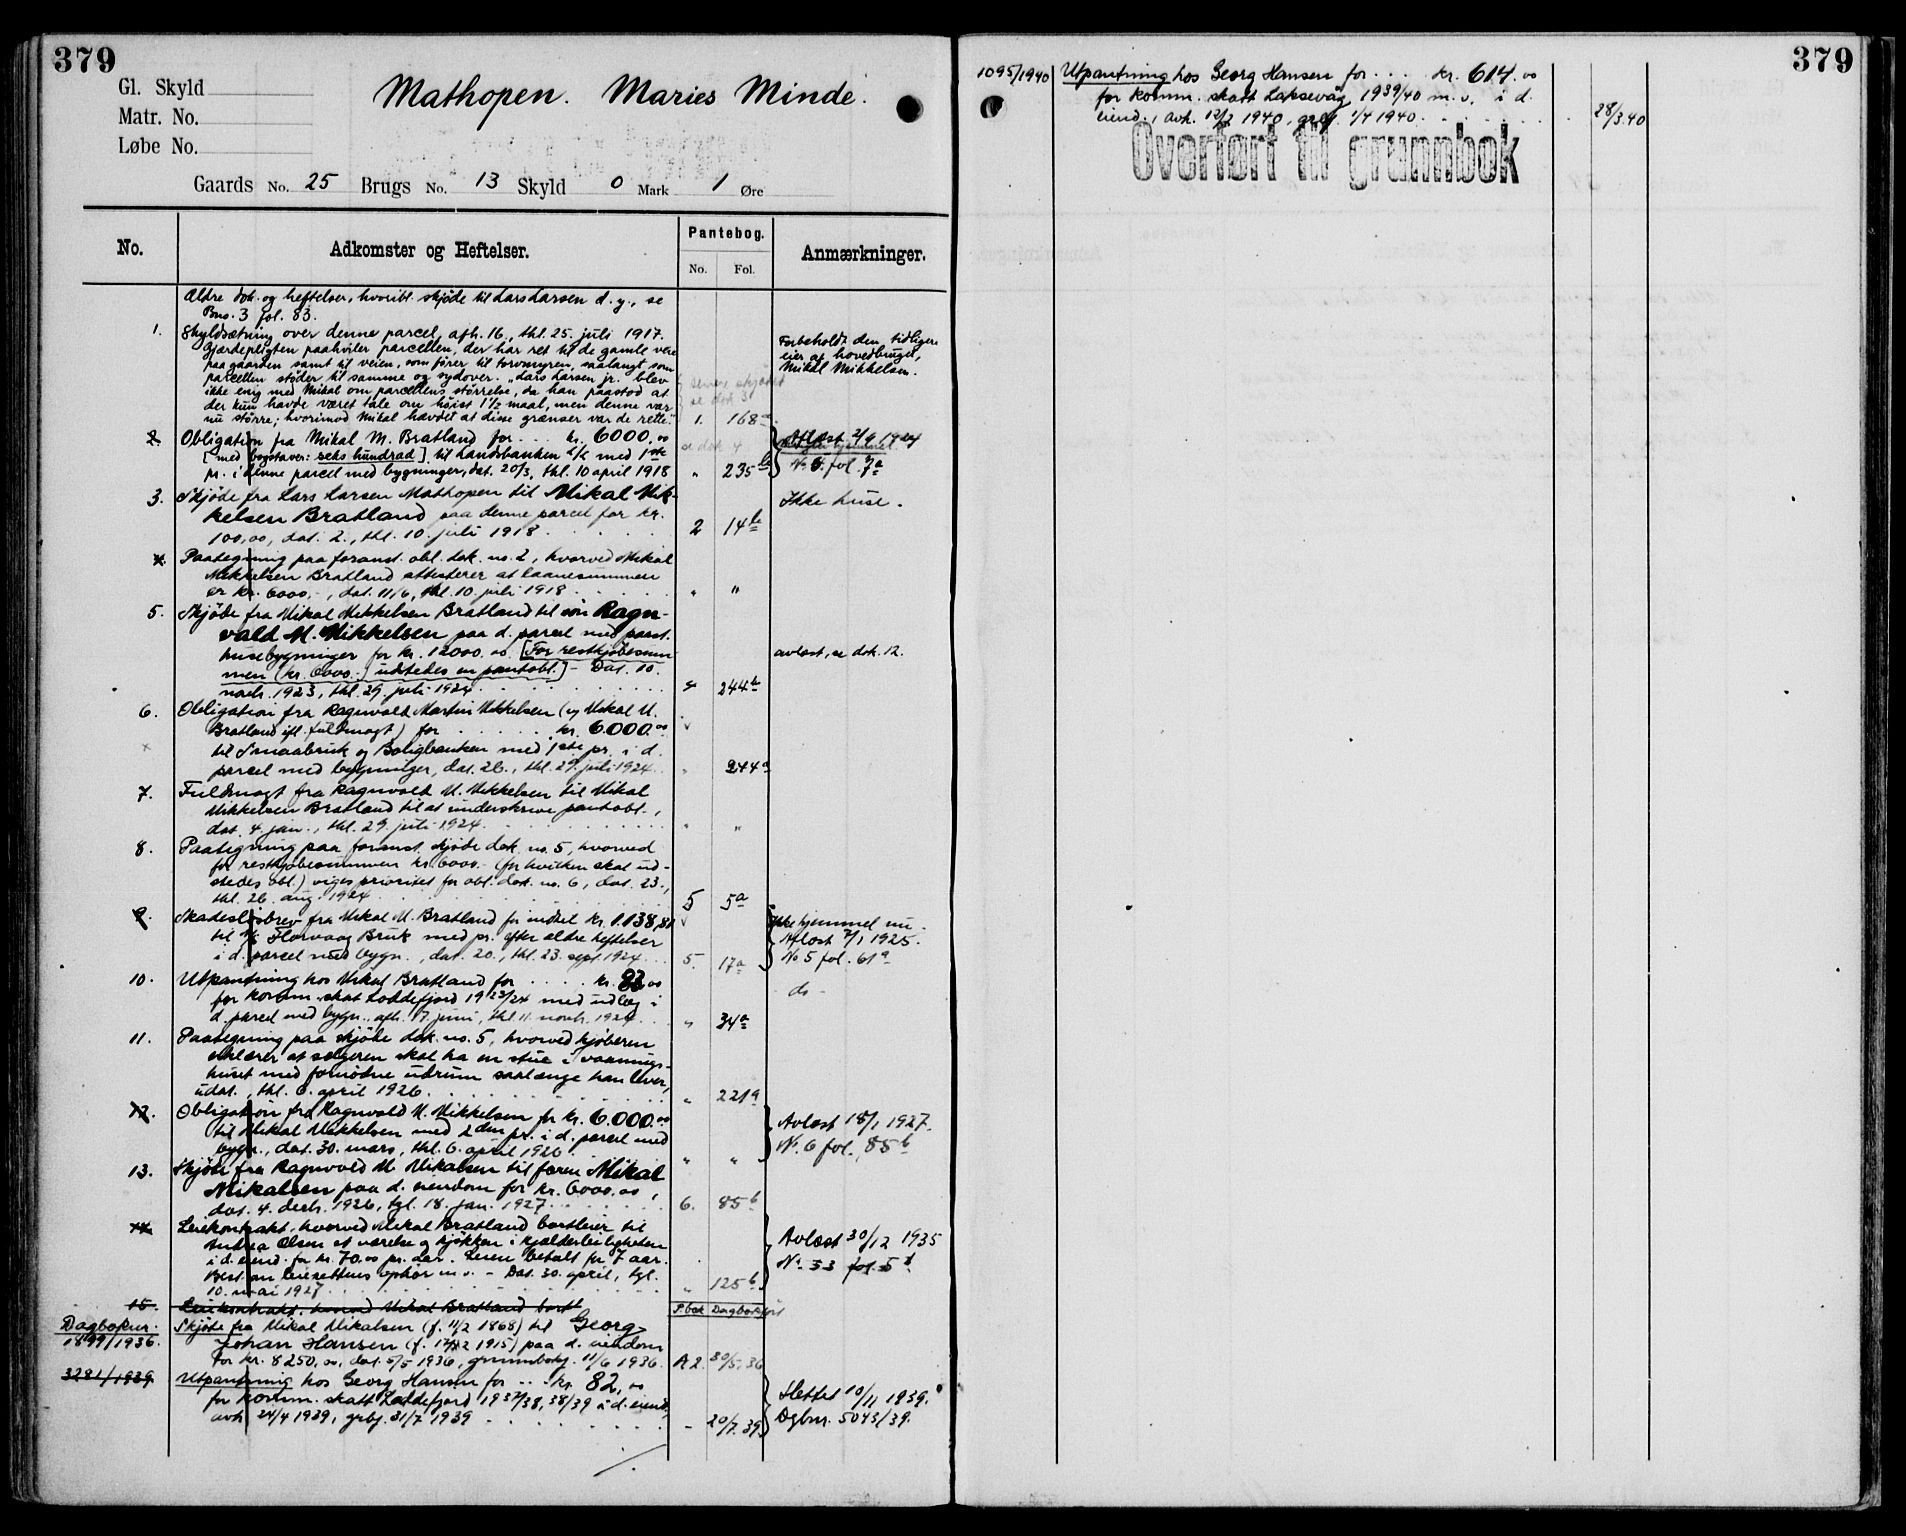 379
Gl. Skyld
Matr. No.
Løbe No.
Mathopen. Maries Minde.
Gaards No. 25 Brugs No. 13 Skyld 0 Mark 1 Øre
No.
Adkomster og Heftelser.
Pantebog.
No. Fol.
Anmærkninger.
Ældre dok. og heftelser, hvoribl. skjøde til Lars Larsen d. y., se
Bno. 3 fol. 83.
1. Skyldsætning over denne parcel, afh. 16., thl. 25. juli 1917.
Gjærdepligten paahviler parcellen, der har ret til de gamle veie
paa gaarden samt til veien, som fører til torvmyren, saalangt som
parcellen støder til samme og sydover. "Lars Larsen jr. blev
ikke enig med Mikal om parcellens størrelse, da han paastod at
der kun havde været tale om høist 1½ maal, men denne var
nu større; hvorimod Mikal hævdet at disse grænser var de rette." 1. 168a
Forbeholdt den tidligere
eier af hovedbruget,
Mikal Mikkelsen.
2. Obligation fra Mikal M. Bratland for kr. 6000,00
[med bogstaver: seks hundrad] til Landsbanken A/S med 1ste
pr. i denne parcel med bygninger, dat. 20/3, thl. 10 april 1918 " 235b
Aflæst 2/9 1924
No 5. fol. 7a
3. Skjøde fra Lars Larsen Mathopen til Mikal Mik-
kelsen Bratland paa denne parcel for kr.
100,00, dat. 2., thl. 10. juli 1918 2 14b
Ikke huse.
4. Paategning paa foranst. obl. dok. no. 2, hvorved Mikal
Mikkelsen Bratland attesterer at laanesummen
er kr. 6000,-, dat. 11/6, thl. 10. juli 1918 " "
5. Skjøde fra Mikal Mikkelsen Bratland til søn Ragn-
vald M. Mikkelsen paa d. parcel med paast.
husebygninger for kr. 12000.00 [For restkjøbesum
men (kr. 6000.-) udstedes en pantobl.] - Dat. 10.
novb. 1923, thl. 29. juli 1924 4 244b
avlæst, se dok. 12.
6. Obligation fra Ragnvald Martin Mikkelsen (v/ Mikal M.
Bratland ifl. fuldmagt) for kr. 6000.00
til Smaabruk og Boligbanken med 1ste pr. i d.
parcel med bygninger, dat. 26., thl. 29. juli 1924 " 244a
7. Fuldmagt fra Ragnvald M. Mikkelsen til Mikal
Mikkelsen Bratland til at underskrive pantobl.,
dat. 4 jan., thl. 29. juli 1924 " "
8. Paategning paa foranst. skjøde dok. no. 5, hvorved
for restkjøbesummen kr. 6000.- (for hvilken skal ud-
stedes obl.) viges prioritet for obl. dok. no. 6, dat. 23.,
thl. 26. aug. 1924 5 5a
9. Skadesløsbrev fra Mikal M. Bratland for indtil kr. 1.138,81
til A/S Florvaag Bruk med pr. efter ældre heftelser
i d. parcel med bygn., dat. 20., thl. 23. sept. 1924 5. 17a
Ikke hjemmel nu.
Aflæst 7/1 1925.
No 5 fol. 61a
10. Utpantning hos Mikal Bratland for kr. 82,00
for komm. skat Loddefjord 1923/24 med udlæg i
d. parcel med bygn., afh. 17. juni, thl. 11. novb. 1924 " 34a
do -
11. Paategning paa skjøde dok. no. 5, hvorved kjøberen
erklærer at sælgeren skal ha en stue i vaanings-
huset med fornødne udrum saalænge han lever,
udat., thl. 6. april 1926 " 221a
12. Obligation fra Ragnvald M. Mikkelsen for kr. 6.000.00
til Mikal Mikkelsen med 2den pr. i d. parcel med
bygn., dat. 30. mars, thl. 6. april 1926 " "
Avlæst 18/1 1927.
No. 6 fol. 85b
13. Skjøte fra Ragnvald M. Mikalsen til faren Mikal
Mikalsen paa d. eiendom for kr. 6000.00,
dat. 4. decb. 1926, tgl. 18. jan. 1927 6. 85b
14. Leiekontrakt, hvorved Mikal Bratland bortleier til
Andrea Olsen et værelse og kjøkken i kjælderleiligheten
i d. eiend. for kr. 70.00 pr. aar. Leien betalt for 7 aar.
Best. om leierettens ophør m.v. - Dat. 30. april, tgl.
10. mai 1927 " 125b
Avlæst 30/12 1935
No 33 fol. 5
15. Leiekontrakt, hvorved Mikal Bratland bortl
P.bok Dagbokført
Dagboknr.
1899/1936. Skjøte fra Mikal Mikalsen (f. 11/2 1868) til Georg
Johan Hansen (f. 17/12 1915) paa d. eiendom
for kr. 8250,00, dat. 5/5 1936, grunnbokf. 11/6 1936. A 2. 30/5.36
3281/1939. Utpantning hos Georg Hansen for kr. 82,00
for komm. skatt Loddefjord 1937/38, 38/39 i d. eiend.,
avh. 24/4 1939, grbf. 31/7 1939 - 20/7.39
Slettet 10/11 1939.
Dgbnr. 5043/39.
379
1095/1940 Utpantning hos Georg Hansen for kr. 614.00
for komm. skatt Laksevåg 1939/40 m.v. i d.
eiend., avh. 12/2 1940, grbf. 1/4 1940 28/3.40
Overført til grunnbok